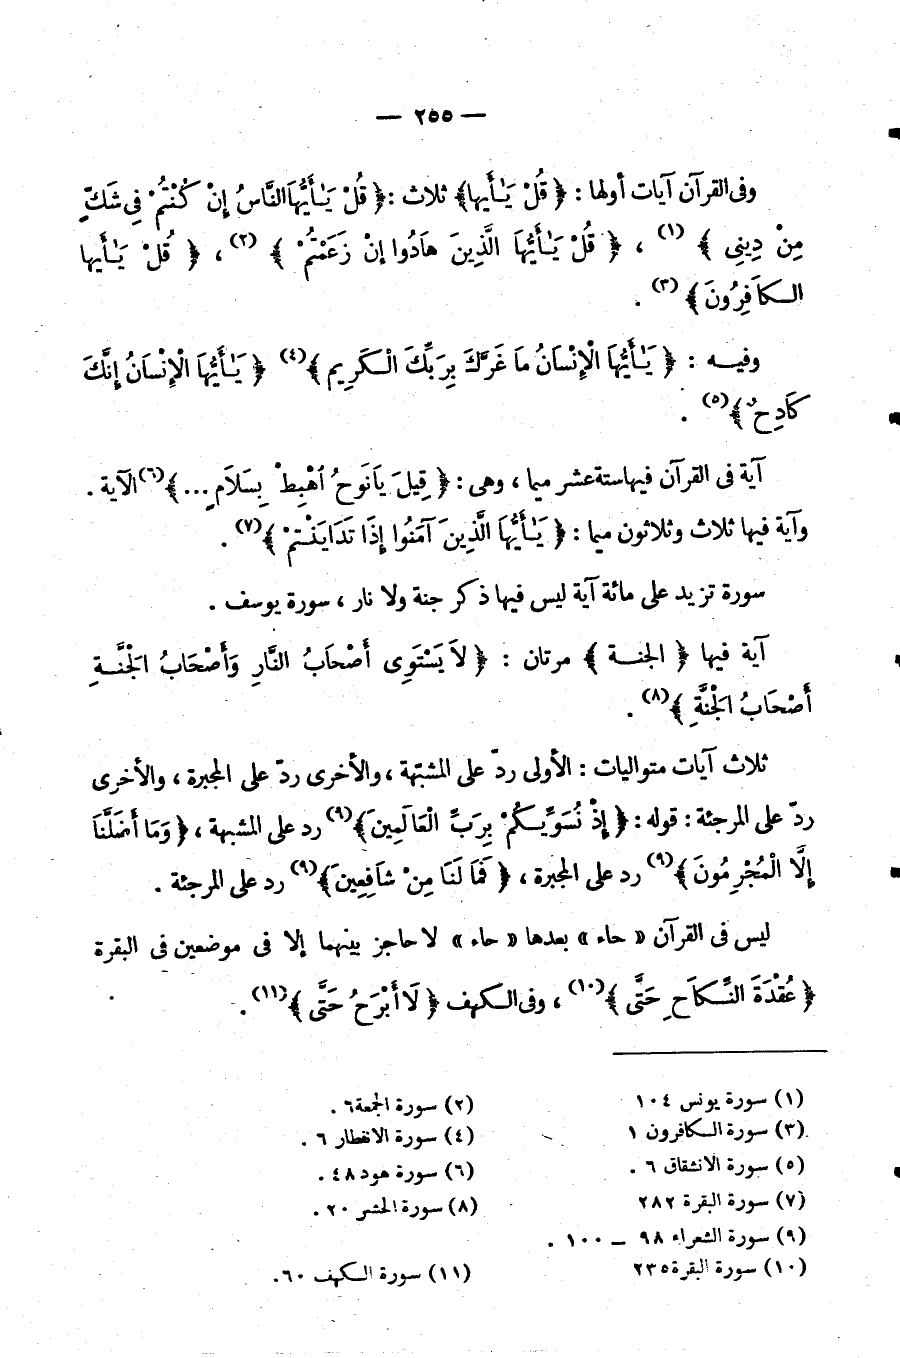 — ٢٥٥ —
وفى القرآن آيات أولها : ﴿ قُلْ يَـٰأَيها﴾ ثلاث :﴿ قُلْ يَـٰأَيُّهَا النَّاسُ إِنْ كُنْتُمْ فِى شَكٍّ
مِنْ دِينِى ﴾ (١) ، ﴿ قُلْ يَـٰأَيُّهَا الَّذِينَ هَادُوا إنْ زَعَمْتُمْ ﴾ (٢) ، ﴿ قُلْ يَـٰأَيها
الـكَافِرُونَ ﴾(٣) .
وفيـــه : ﴿ يَـٰأَيُّهَا الْإِنْسَانُ مَا غَرَّكَ بِرَبِّكَ الْـكَرِيم ﴾(٤) ﴿ يَـٰأَيُّهَا الْإِنْسَانُ إِنَّكَ
كَادِحٌ ﴾(٥) .
آية فى القرآن فيها ستة عشر ميما ، وهى : ﴿ قِيلَ يَانُوحُ اهْبِطْ بِسَلَامٍ ... ﴾(٦) الآية .
وآية فيها ثلاث وثلاثون ميما : ﴿ يَـٰأَيُّهَا الَّذِينَ آمَنُوا إِذَا تَدَايَنْـتمْ ﴾(٧) .
سورة تزيد على مائة آية ليس فيها ذكر جنة ولا نار ، سورة يوسف .
آية فيها ﴿ الجنــة ﴾ مرتان : ﴿ لاَ يَسْتَوِى أَصْحَابُ النَّارِ وَأَصْحَابُ الجَنَّــةِ
أَصْحَابُ الجَنَّةِ ﴾(٨) .
ثلاث آيات متواليات : الأولى ردّ على المشبّهة ، والأخرى ردّ على المجبرة ، والأخرى
ردّ على المرجئة : قوله : ﴿ إِذْ نُسَوِّيـكُمْ بِرَبِّ الْعَالَمِينَ ﴾(٩) رد على المشبهة ، ﴿ وَمَا أَضَلَّنَا
إِلَّا الْمُجْرِمُونَ ﴾(٩) رد على المجبرة ، ﴿ فَمَا لَنَا مِنْ شَافِعِينَ ﴾(٩) رد على المرجئة .
ليس فى القرآن « حاء » بعدها « حاء » لا حاجز بينهما إلا فى موضعين فى البقرة
﴿ عُقْدَةَ النِّـكَاحِ حَتَّى ﴾(١٠) ، وفى الـكهف ﴿ لَا أَبْرَحُ حَتَّى ﴾(١١) .
(١) سورة يونس ١٠٤
(٢) سورة الجمعة ٦ .
(٣) سورة الـكافرون ١
(٤) سورة الانفطار ٦ .
(٥) سورة الانشقاق ٦ .
(٦) سورة هود ٤٨ .
(٧) سورة البقرة ٢٨٢
(٨) سورة الحشر ٢٠ .
(٩) سورة الشعراء ٩٨ – ١٠٠ .
(١٠) سورة البقرة ٢٣٥
(١١) سورة الـكهف ٦٠ .